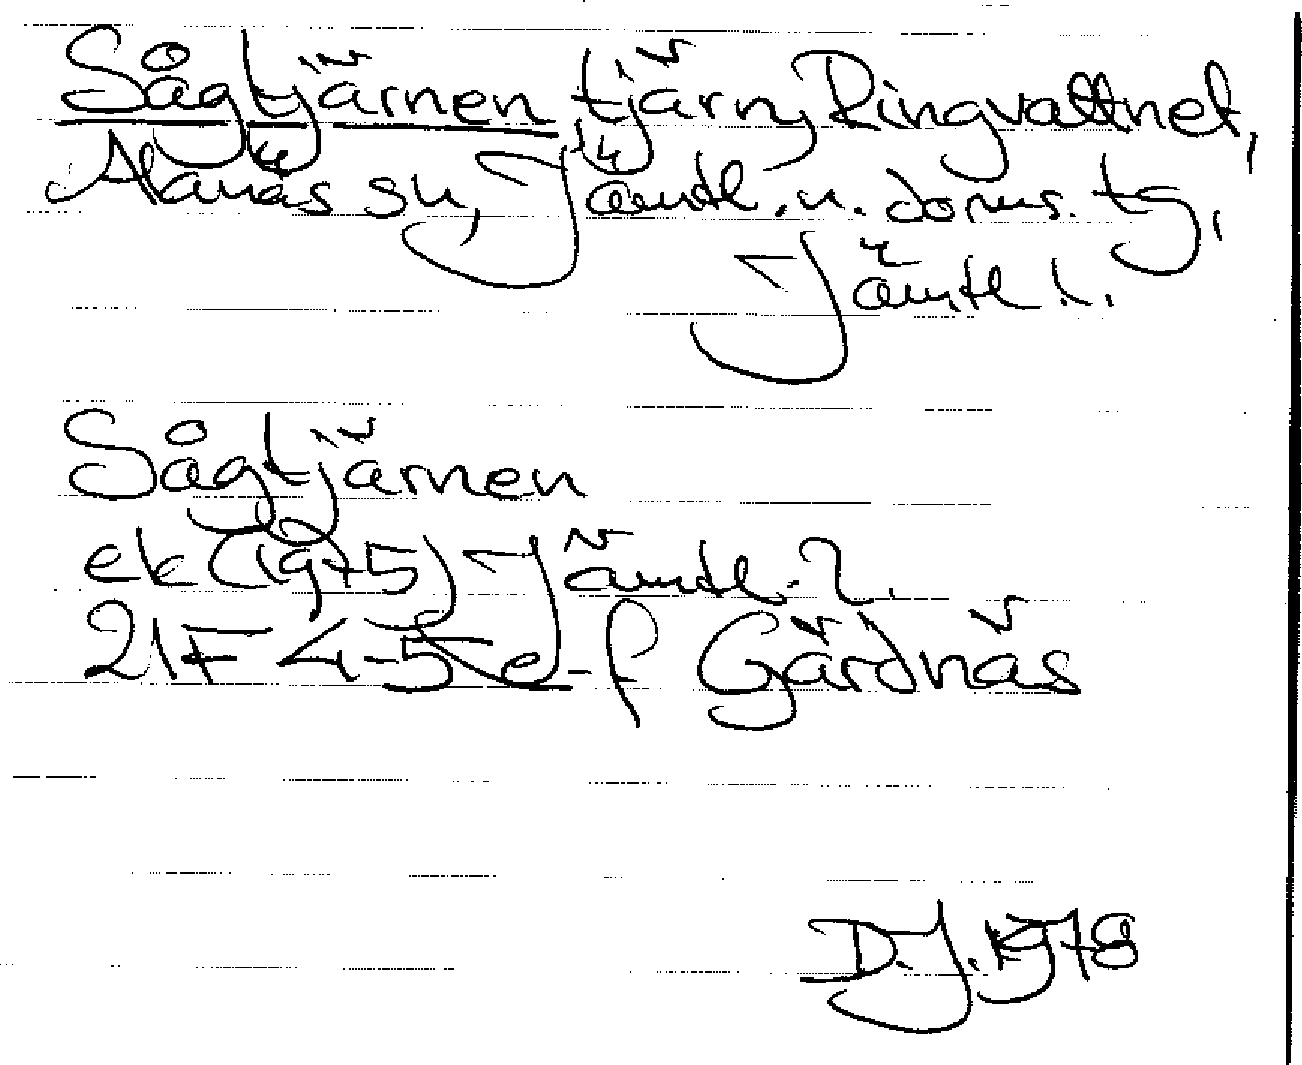 Sågtjärnen tjärn, Ringvattnet,
Alanäs sn, Jämtl. n. doms. tg,
Jämtl. l.
Sågtjärnen
ek (1975) Jämtl. l.
21F 4-5 e-f Gärdnäs
D.J. 1978